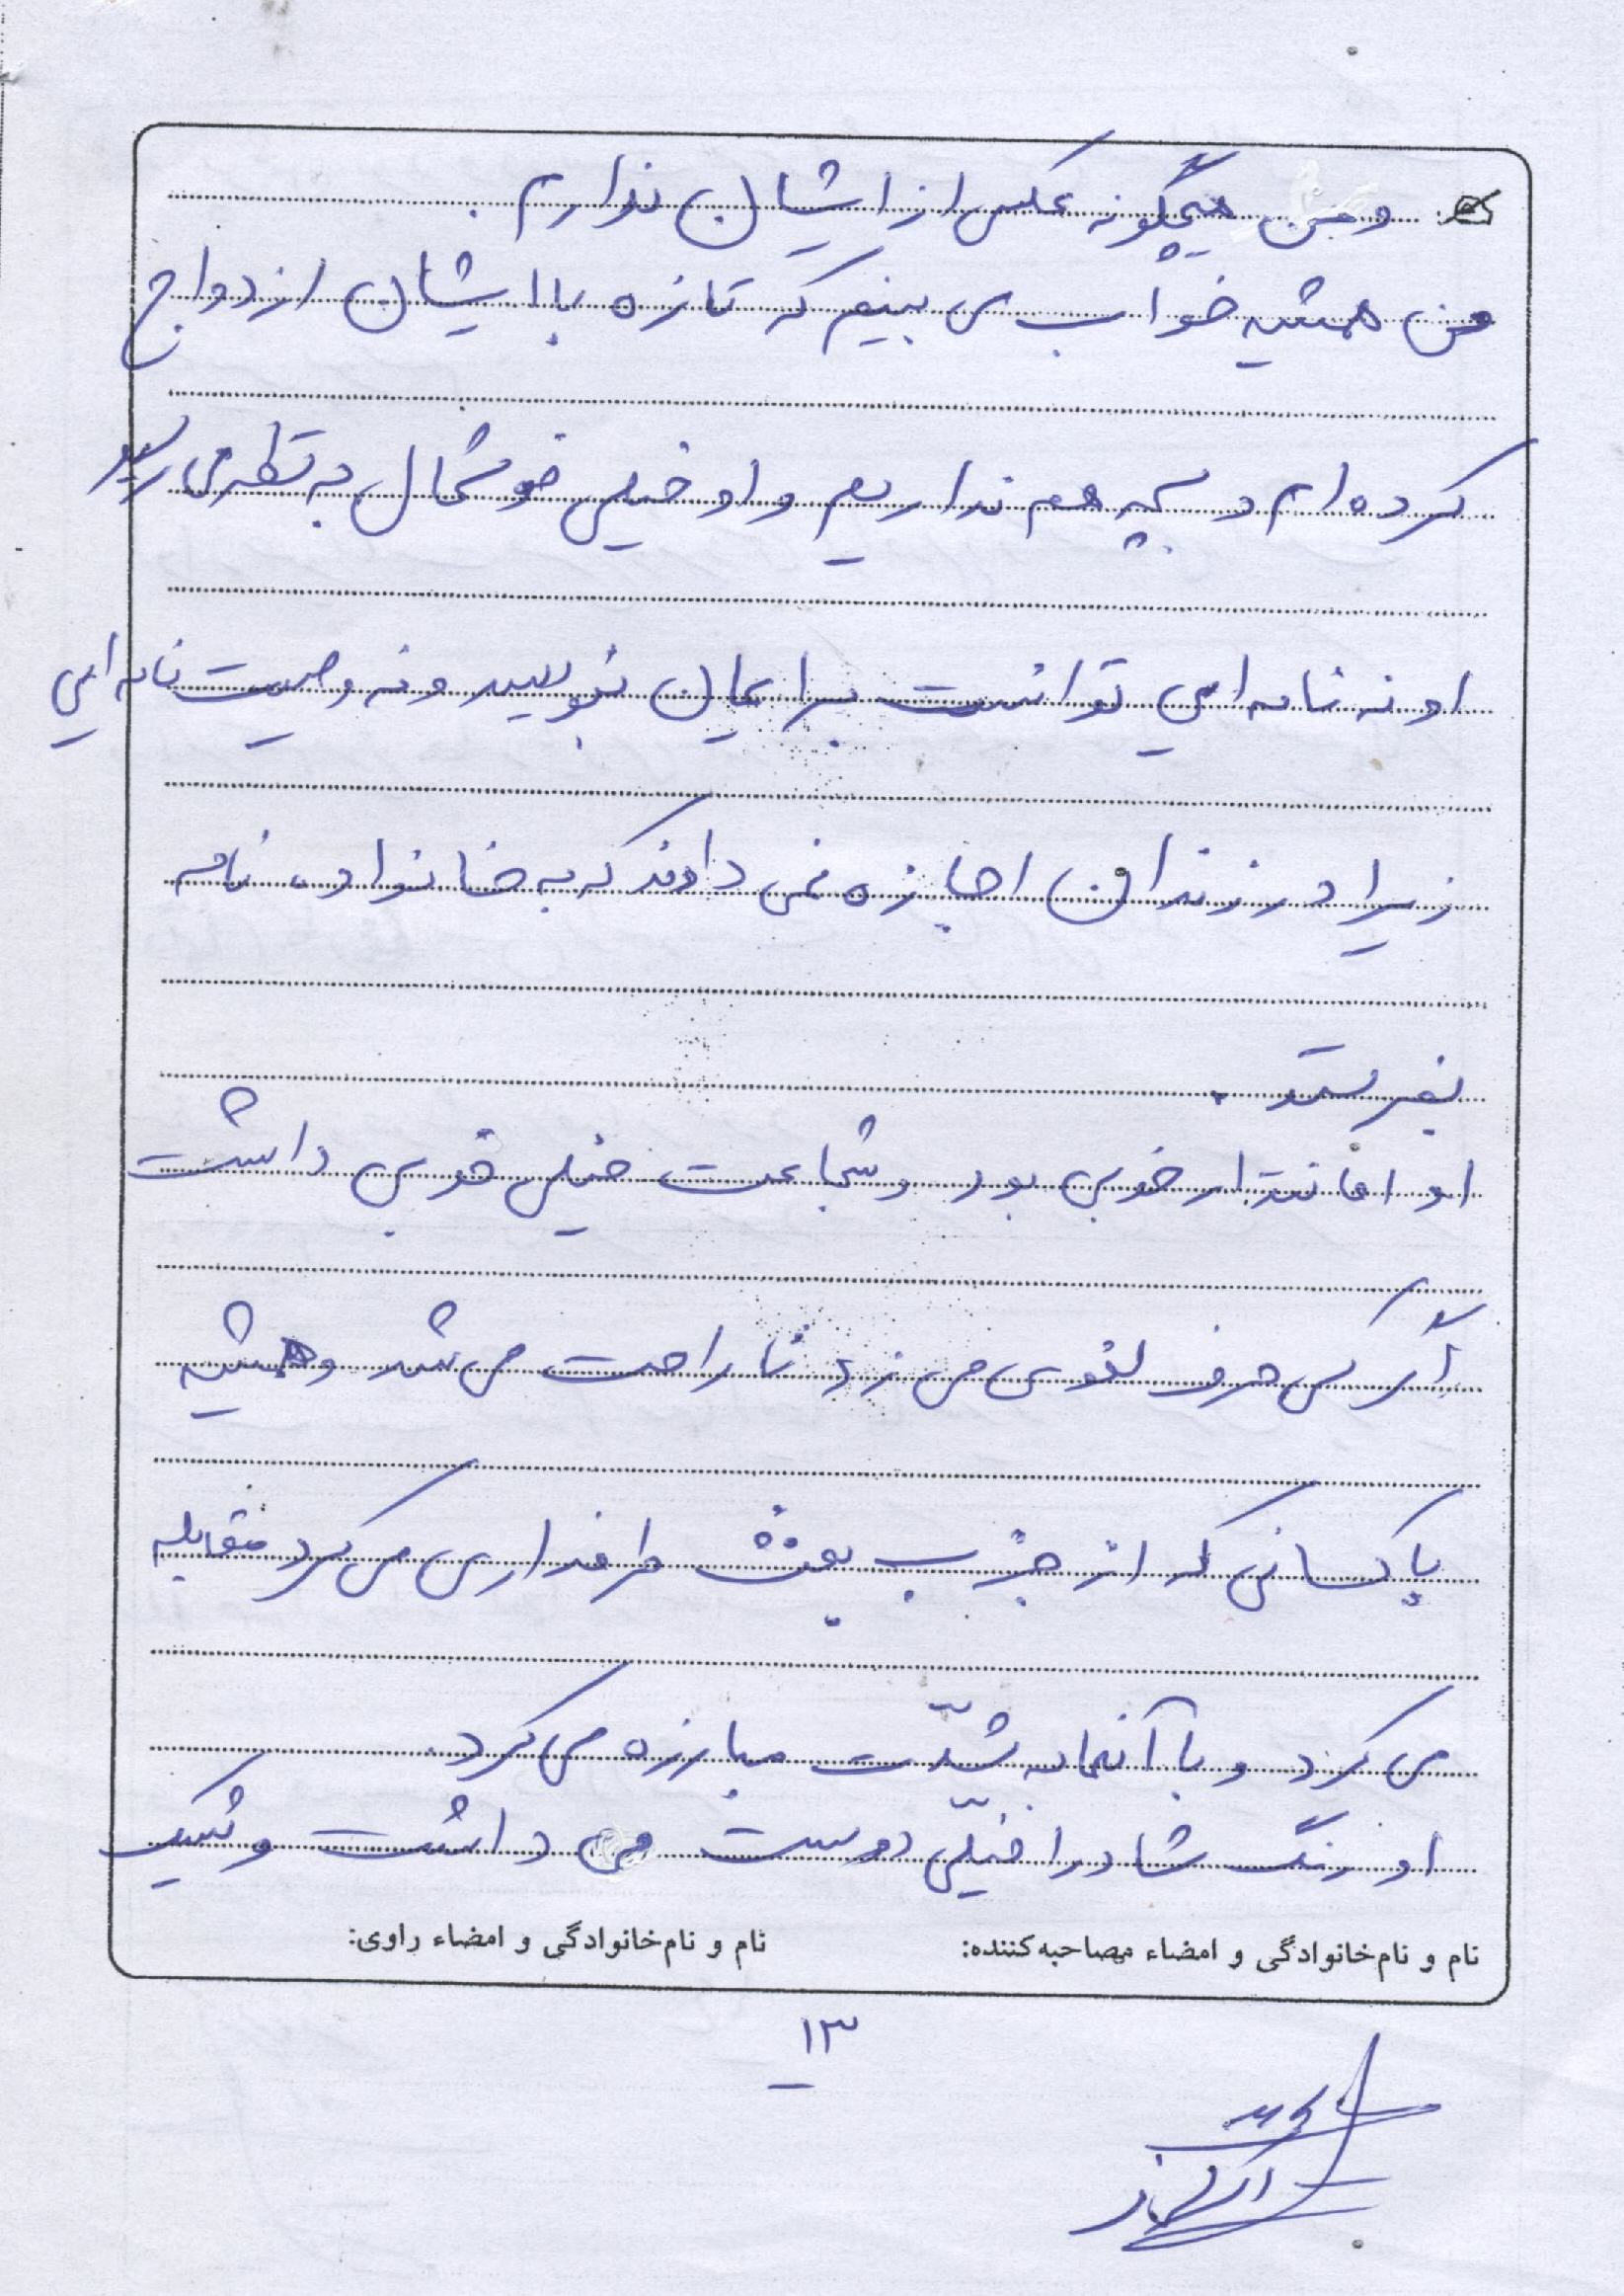 و من هیچگونه عکس از ایشان ندارم .
من همشیه خواب می بینم که تازه با ایشان ازدواج
کرده ام و بچه هم نداریم و او خیلی خوشحال به نظر می رسید
او نه نامه ایی توانست برایمان بنویسد و نه وصیت نامه ایی
زیرا در زندان اجازه نمی دادند که به خانواده نامه
بفرستد .
او امانتدار خوبی بود و شجاعت خیلی خوبی داشت
اگر کسی حرف لغوی می زد ناراحت می شد و همشیه
با کسانی که از حزب بعث طرفداری می کرد مقابله
می کرد و با آنها به شدّت مبارزه می کرد.
او رنگ شاد را خیلّی دوست می داشت و شیک
نام و نام‌خانوادگی و امضاء مصاحبه‌کننده: نام و نام‌خانوادگی و امضاء راوی:
۱۳